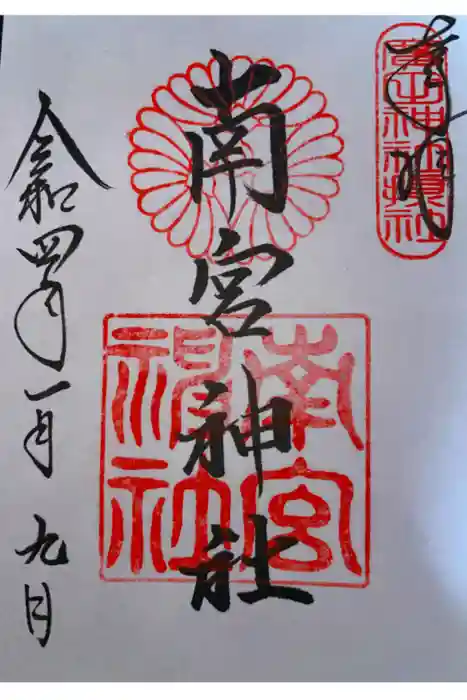 奉拝
廣田神社攝社
南宮神社
南宮
神社
令和四年一月九日